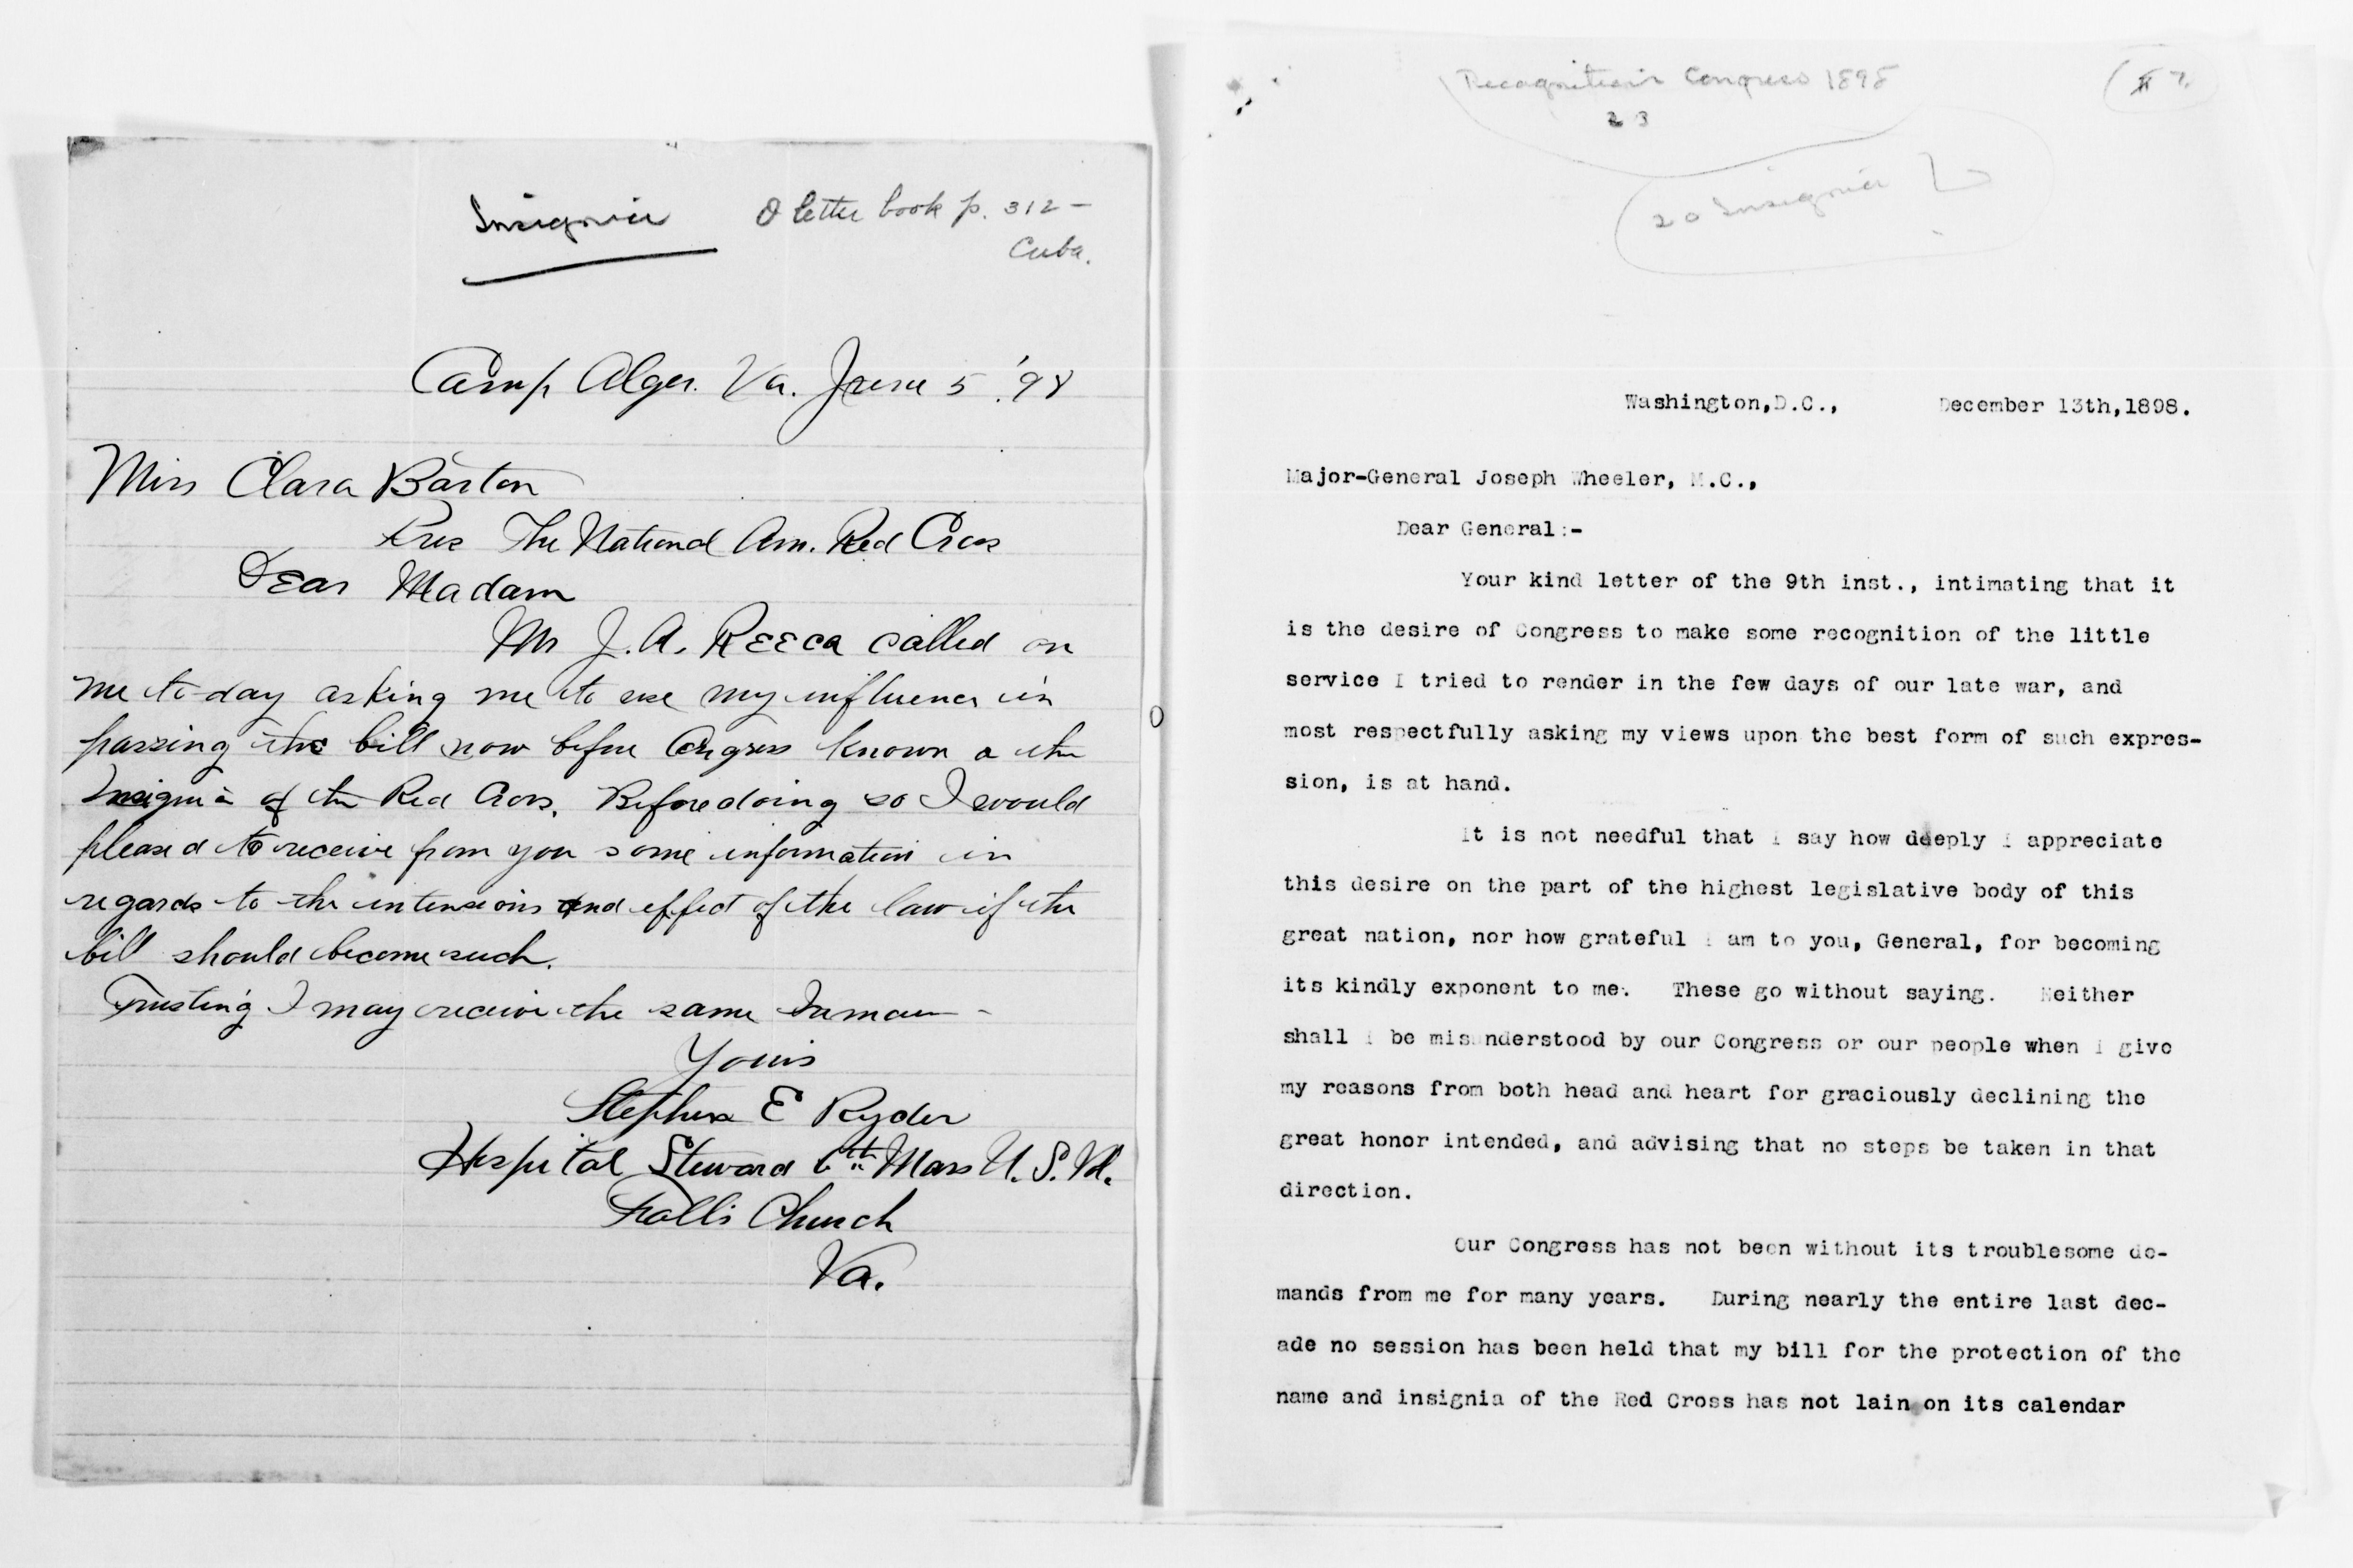 Insignia
O letter book p. 312 -
Cuba.
Camp Alger. Va. June 5. '98
Miss Clara Barton
Pres The National Am. Red Cross
Dear Madam
Mr J. A. Reeca called on
me to-day asking me to use my influence in
passing the bill now before Congress known a the
Insignia of the Red Cross. Before doing so I would
pleased to receive from you some information in
regards to the intensions and effect of the law if the
bill should become such.
Trusting I may receive the same I remain -
Yours
Stephen E Ryder
Hospital Steward 6th Mass U. S. Vol.
Falls Church
Va.
Recognition Congress 1898
23
20 Insignia
Washington,D.C., December 13th,1898.
Major-General Joseph Wheeler, M.C.,
Dear General:-
Your kind letter of the 9th inst., intimating that it
is the desire of Congress to make some recognition of the little
service I tried to render in the few days of our late war, and
most respectfully asking my views upon the best form of such expres-
sion, is at hand.
It is not needful that I say how deeply I appreciate
this desire on the part of the highest legislative body of this
great nation, nor how grateful I am to you, General, for becoming
its kindly exponent to me. These go without saying. Neither
shall I be misunderstood by our Congress or our people when I give
my reasons from both head and heart for graciously declining the
great honor intended, and advising that no steps be taken in that
direction.
Our Congress has not been without its troublesome de-
mands from me for many years. During nearly the entire last dec-
ade no session has been held that my bill for the protection of the
name and insignia of the Red Cross has not lain on its calendar